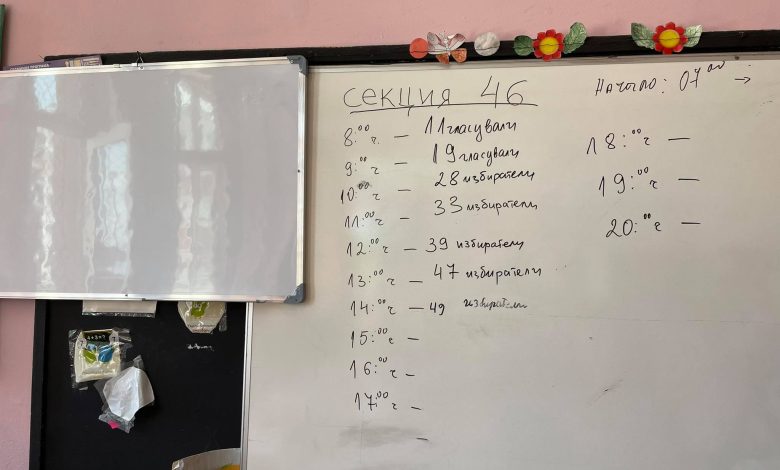 секция 46
8:00 ч. – 11 гласували
9:00 ч – 19 гласували
10:00 ч – 28 избиратели
11:00 ч – 33 избиратели
12:00 ч – 39 избиратели
13:00 ч – 47 избиратели
14:00 ч – 49 избиратели
15:00 ч –
16:00 ч –
17:00 ч –
–
Начало: 07 00 →
18:00 ч –
19:00 ч –
20:00 ч –